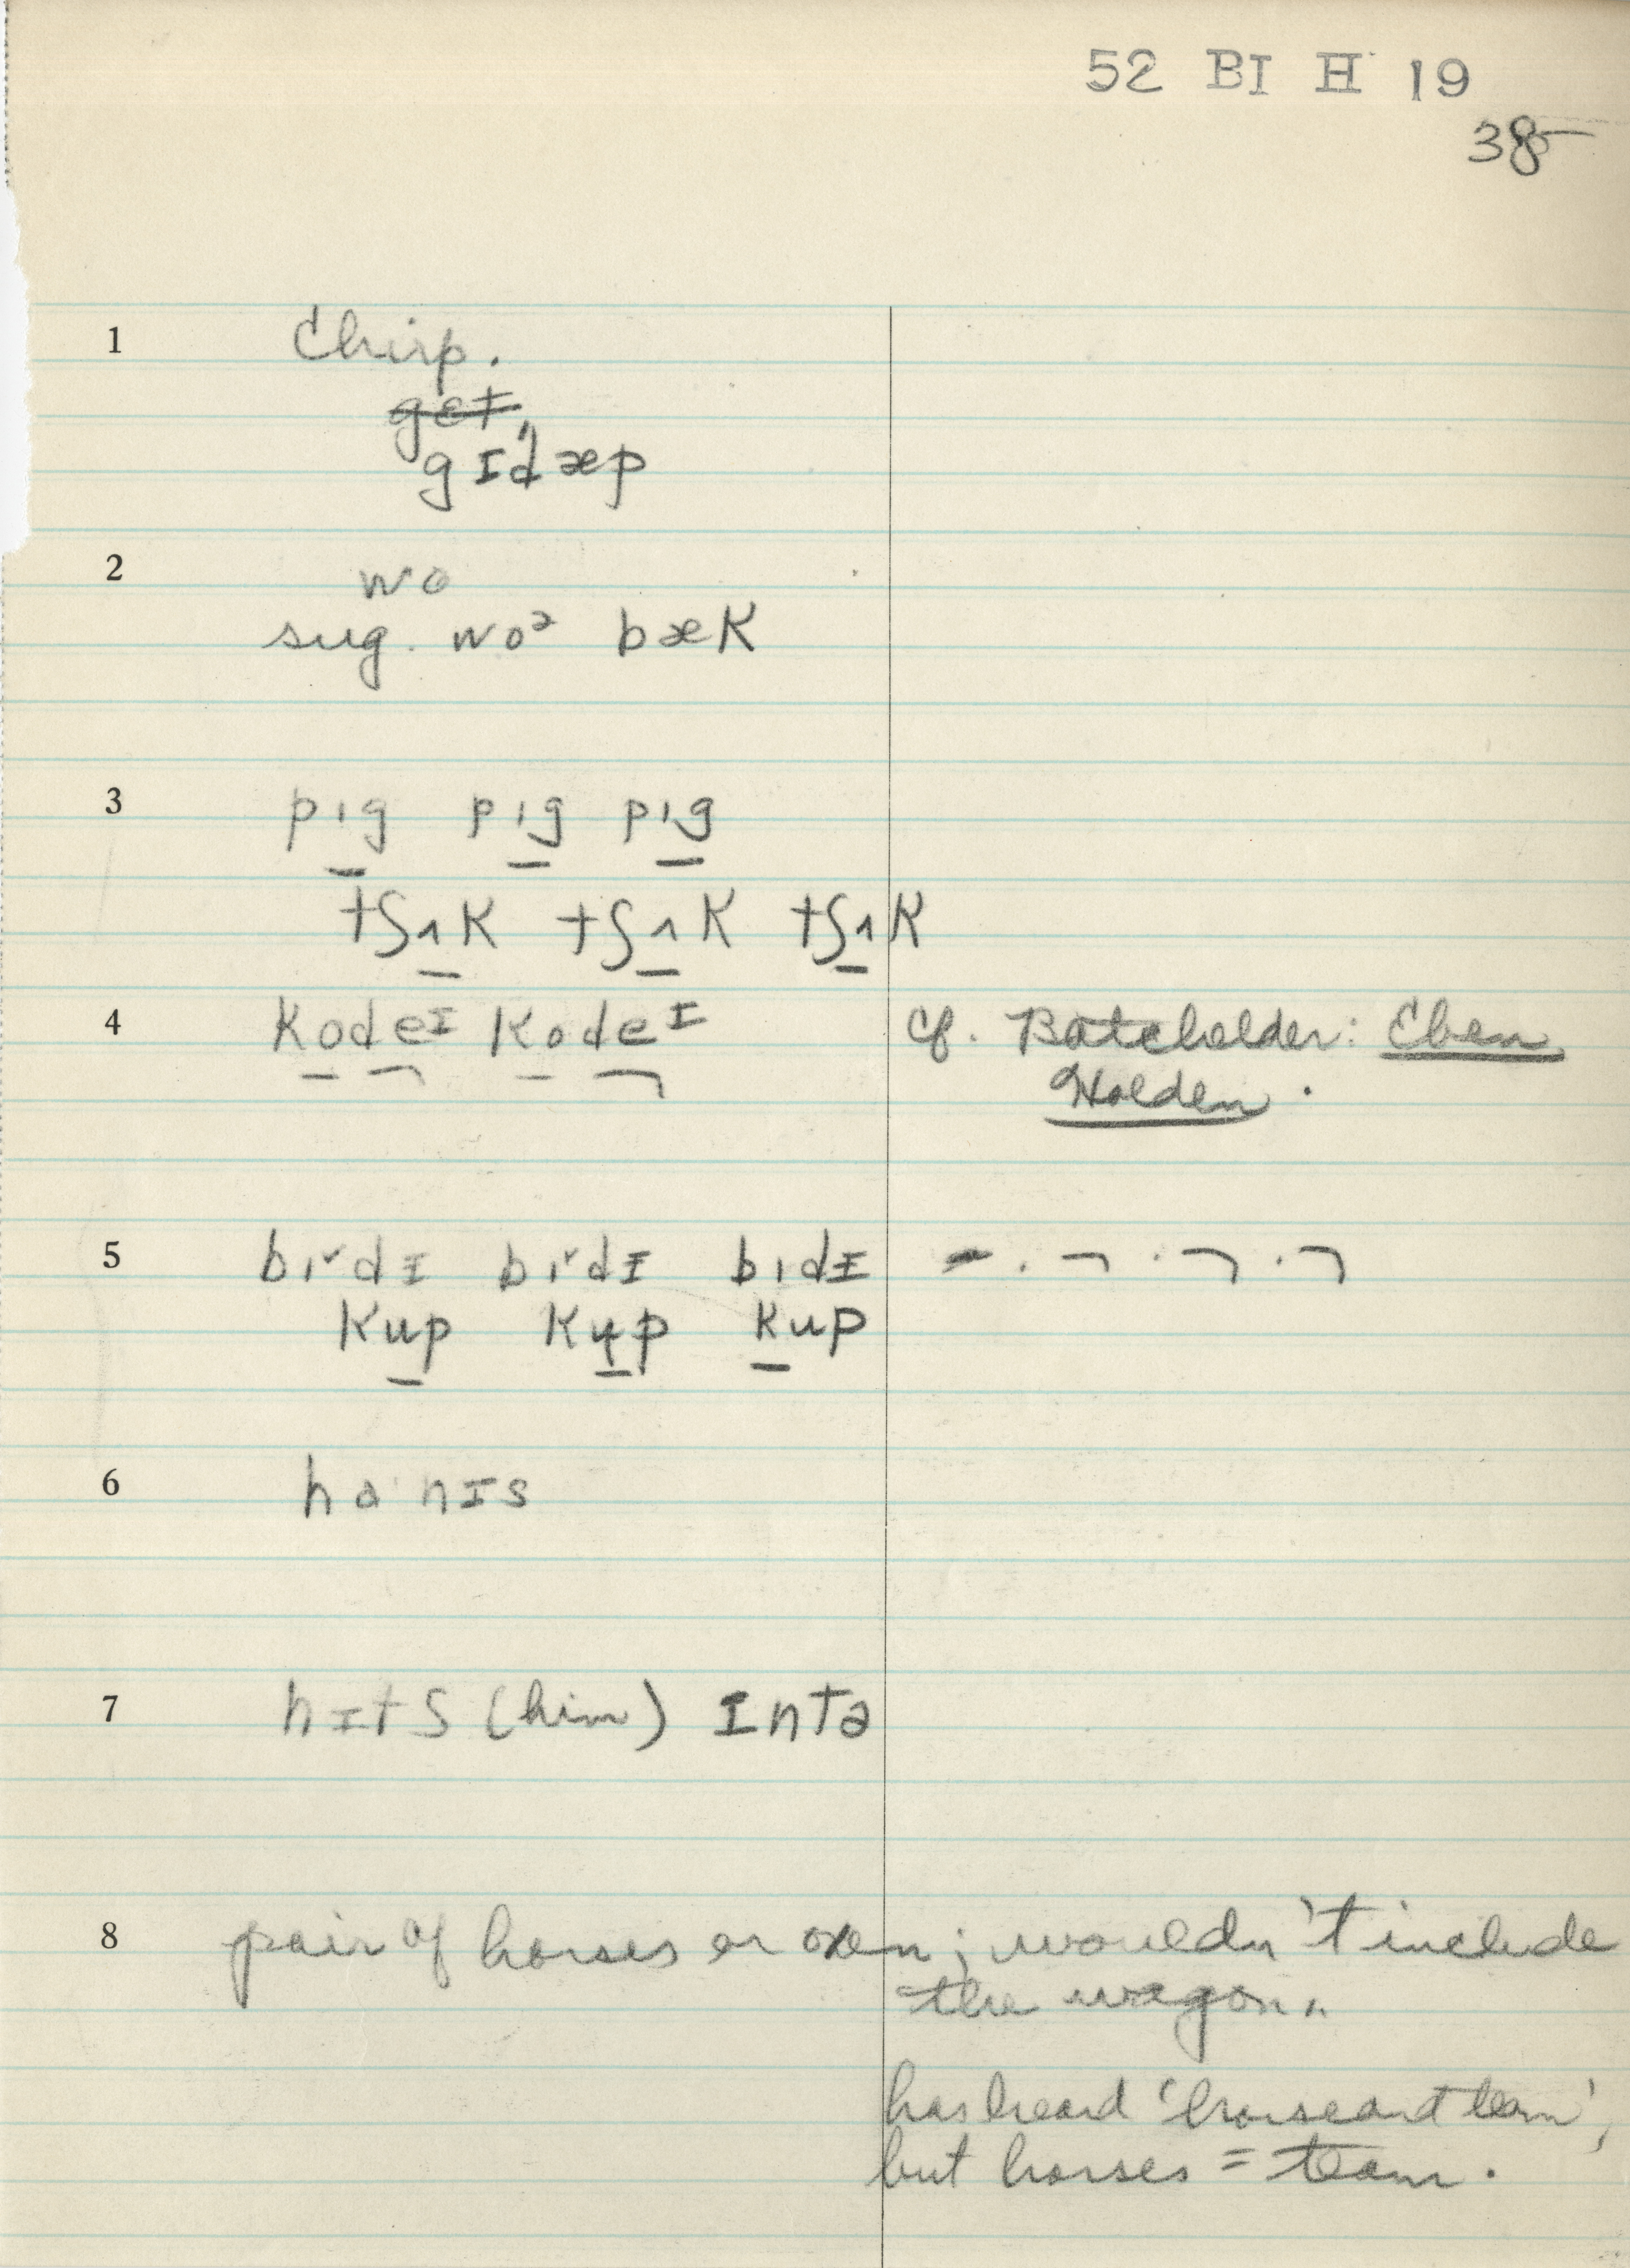 52 BI H 19
38
1 Chirp.
gɛt,
gɪdæp
2 wo
sug. woᵊ bæk
3 pıg pıg pıg
tʃʌk tʃʌk tʃʌk
4 kodeɪ kodeɪ cf. Batchelder: Eben
Holden.
5 bırdɪ bırdɪ bıdɪ
kup kup kup
6 ha nɪs
7 hɪtʃ (him) ɪntə
8 pair of horses or oxen; wouldn't include
the wagon.
has heard 'horse and team',
but horses = team.